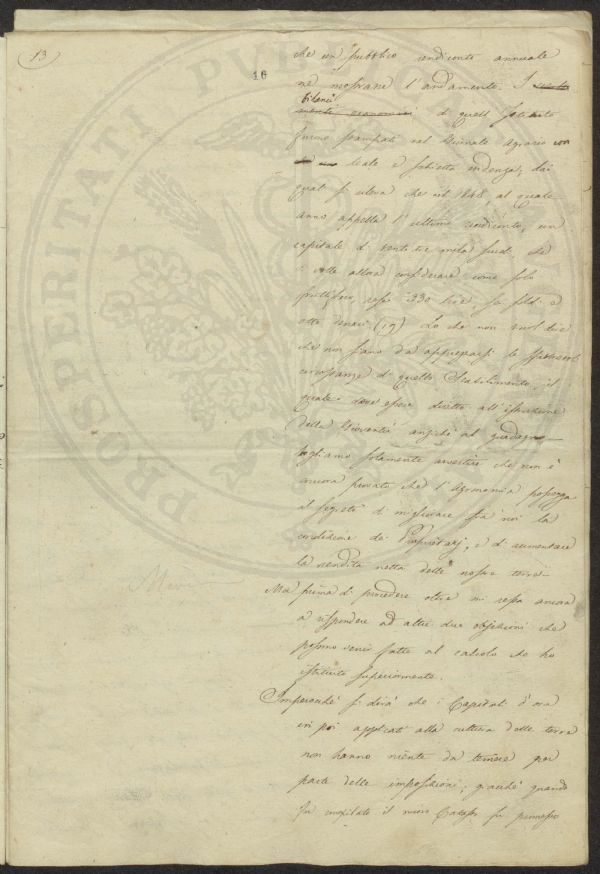 13
16
che un pubblico rendiconto annuale
ne mostrane l'andamento. I
bilanci
economici di quell' Istituto
furono stampati nel Giornale Agrario con
leale e schietta indenza, dai
quali si rileva che nel 1848, al quale
anno appella l'ultimo rendiconto, un
capitale di venti tre mila scudi che
si volle allora considerare come solo
fruttifero, rese 330 lire, sei soldi e
otto denari (19) Lo che non vuol dire
che non siano da apprezzarsi le
circostanze di quello Stabilimento, il
quale deve esser diretto all'istruzione
della Gioventù anziché al guadagno
vogliamo solamente avvertire che non è
ancora provato che l'Agronomia possegga
il segreto di migliorare fra noi la
condizione dei Proprietarj, e di aumentare
la rendita netta delle nostre terre.
Ma prima di procedere oltre mi resta ancora
a rispondere ad altre due obiezioni che
possono venir fatte al calcolo che ho
istituito superiormente.
Imperocché si dirà che i Capitali d'ora
in poi applicati alla cultura delle terre
non hanno niente da temere per
parte delle imposizioni; giacché quando
fu compilato il nuovo Catasto fu promesso
PROSPERITATI PUBLICAE